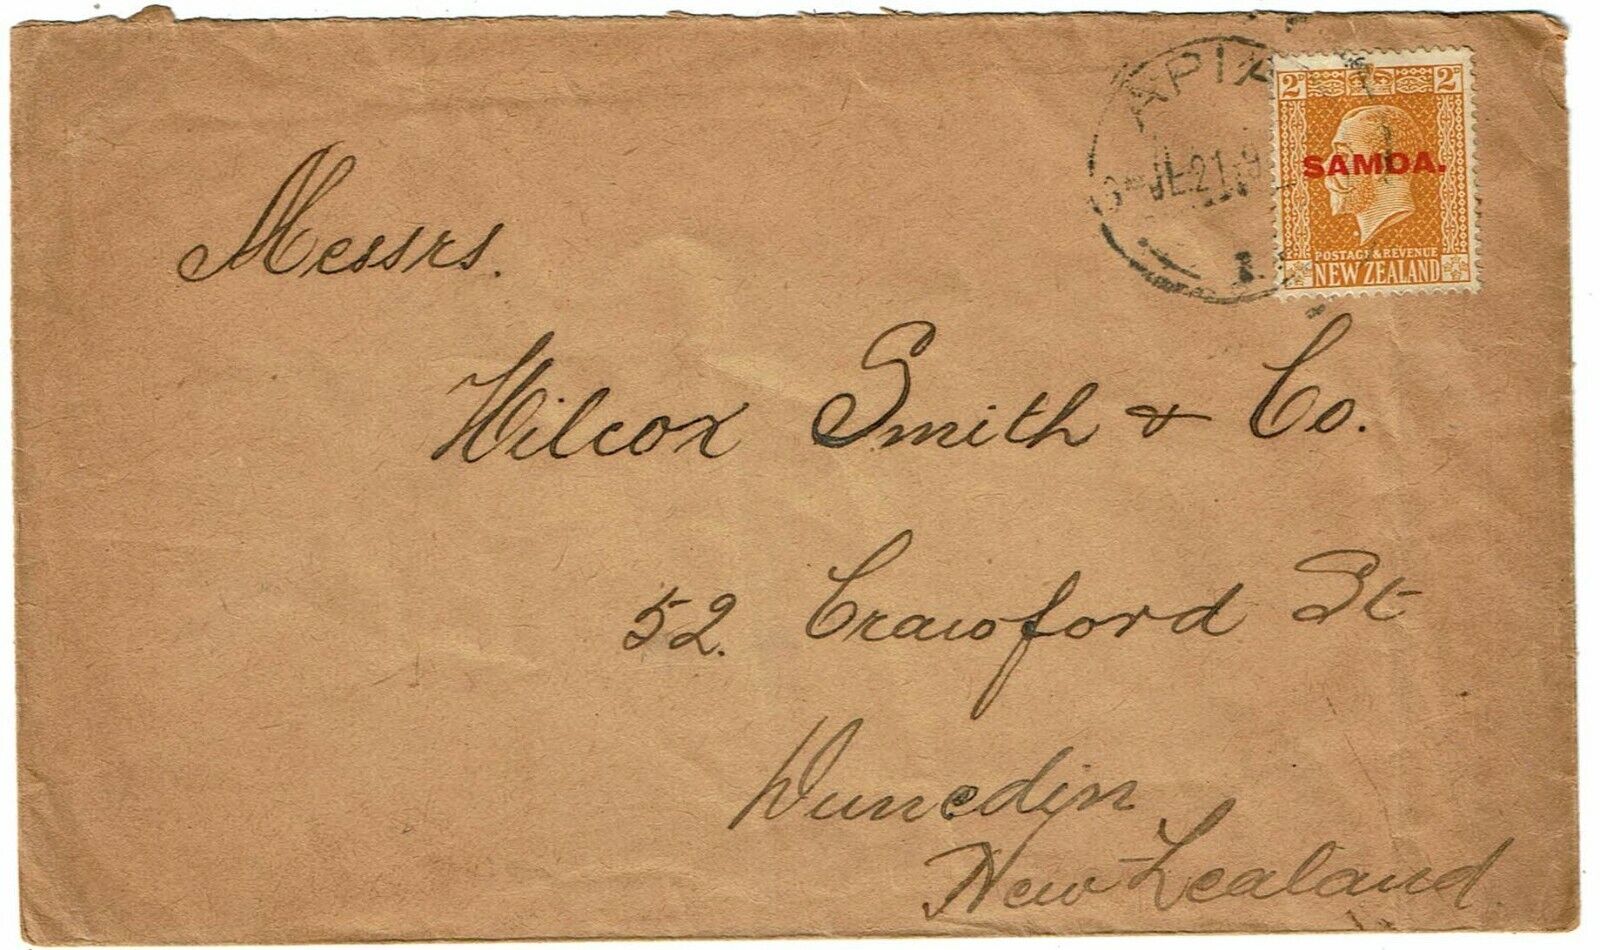 APIA
JL 21
2D 2D
SAMOA.
POSTAGE & REVENUE
NEW ZEALAND
Messrs.
Wilcox Smith & Co.
52. Crawford St
Dunedin
New Zealand